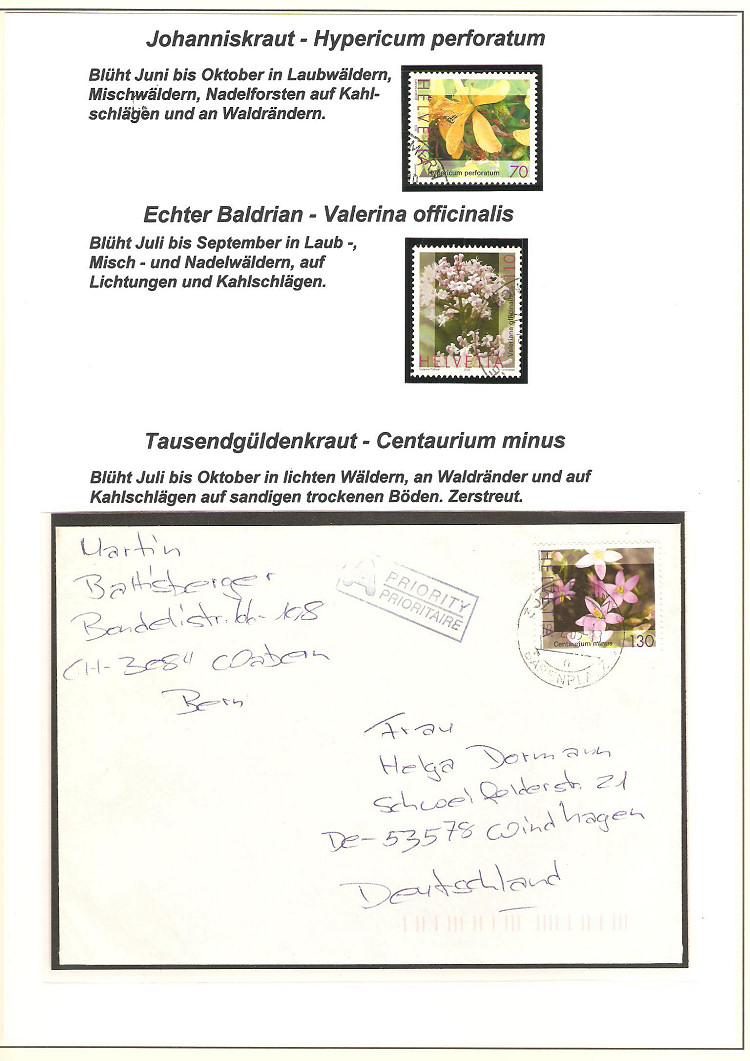 Johanniskraut - Hypericum perforatum
Blüht Juni bis Oktober in Laubwäldern,
Mischwäldern, Nadelforsten auf Kahl-
schlägen und an Waldrändern.
HELVETIA
Hypericum perforatum
70
Echter Baldrian - Valerina officinalis
Blüht Juli bis September in Laub -,
Misch - und Nadelwäldern, auf
Lichtungen und Kahlschlägen.
110
Valeriana officinalis
HELVETIA
Tausendgüldenkraut - Centaurium minus
Blüht Juli bis Oktober in lichten Wäldern, an Waldränder und auf
Kahlschlägen auf sandigen trockenen Böden. Zerstreut.
Martin
CH-3084 Wabern
Bern
A PRIORITY
PRIORITAIRE
HELVETIA
Centaurium minus
130
Frau
Helga Dormann
Schweifelderstr. 21
De-53578 Windhagen
Deutschland